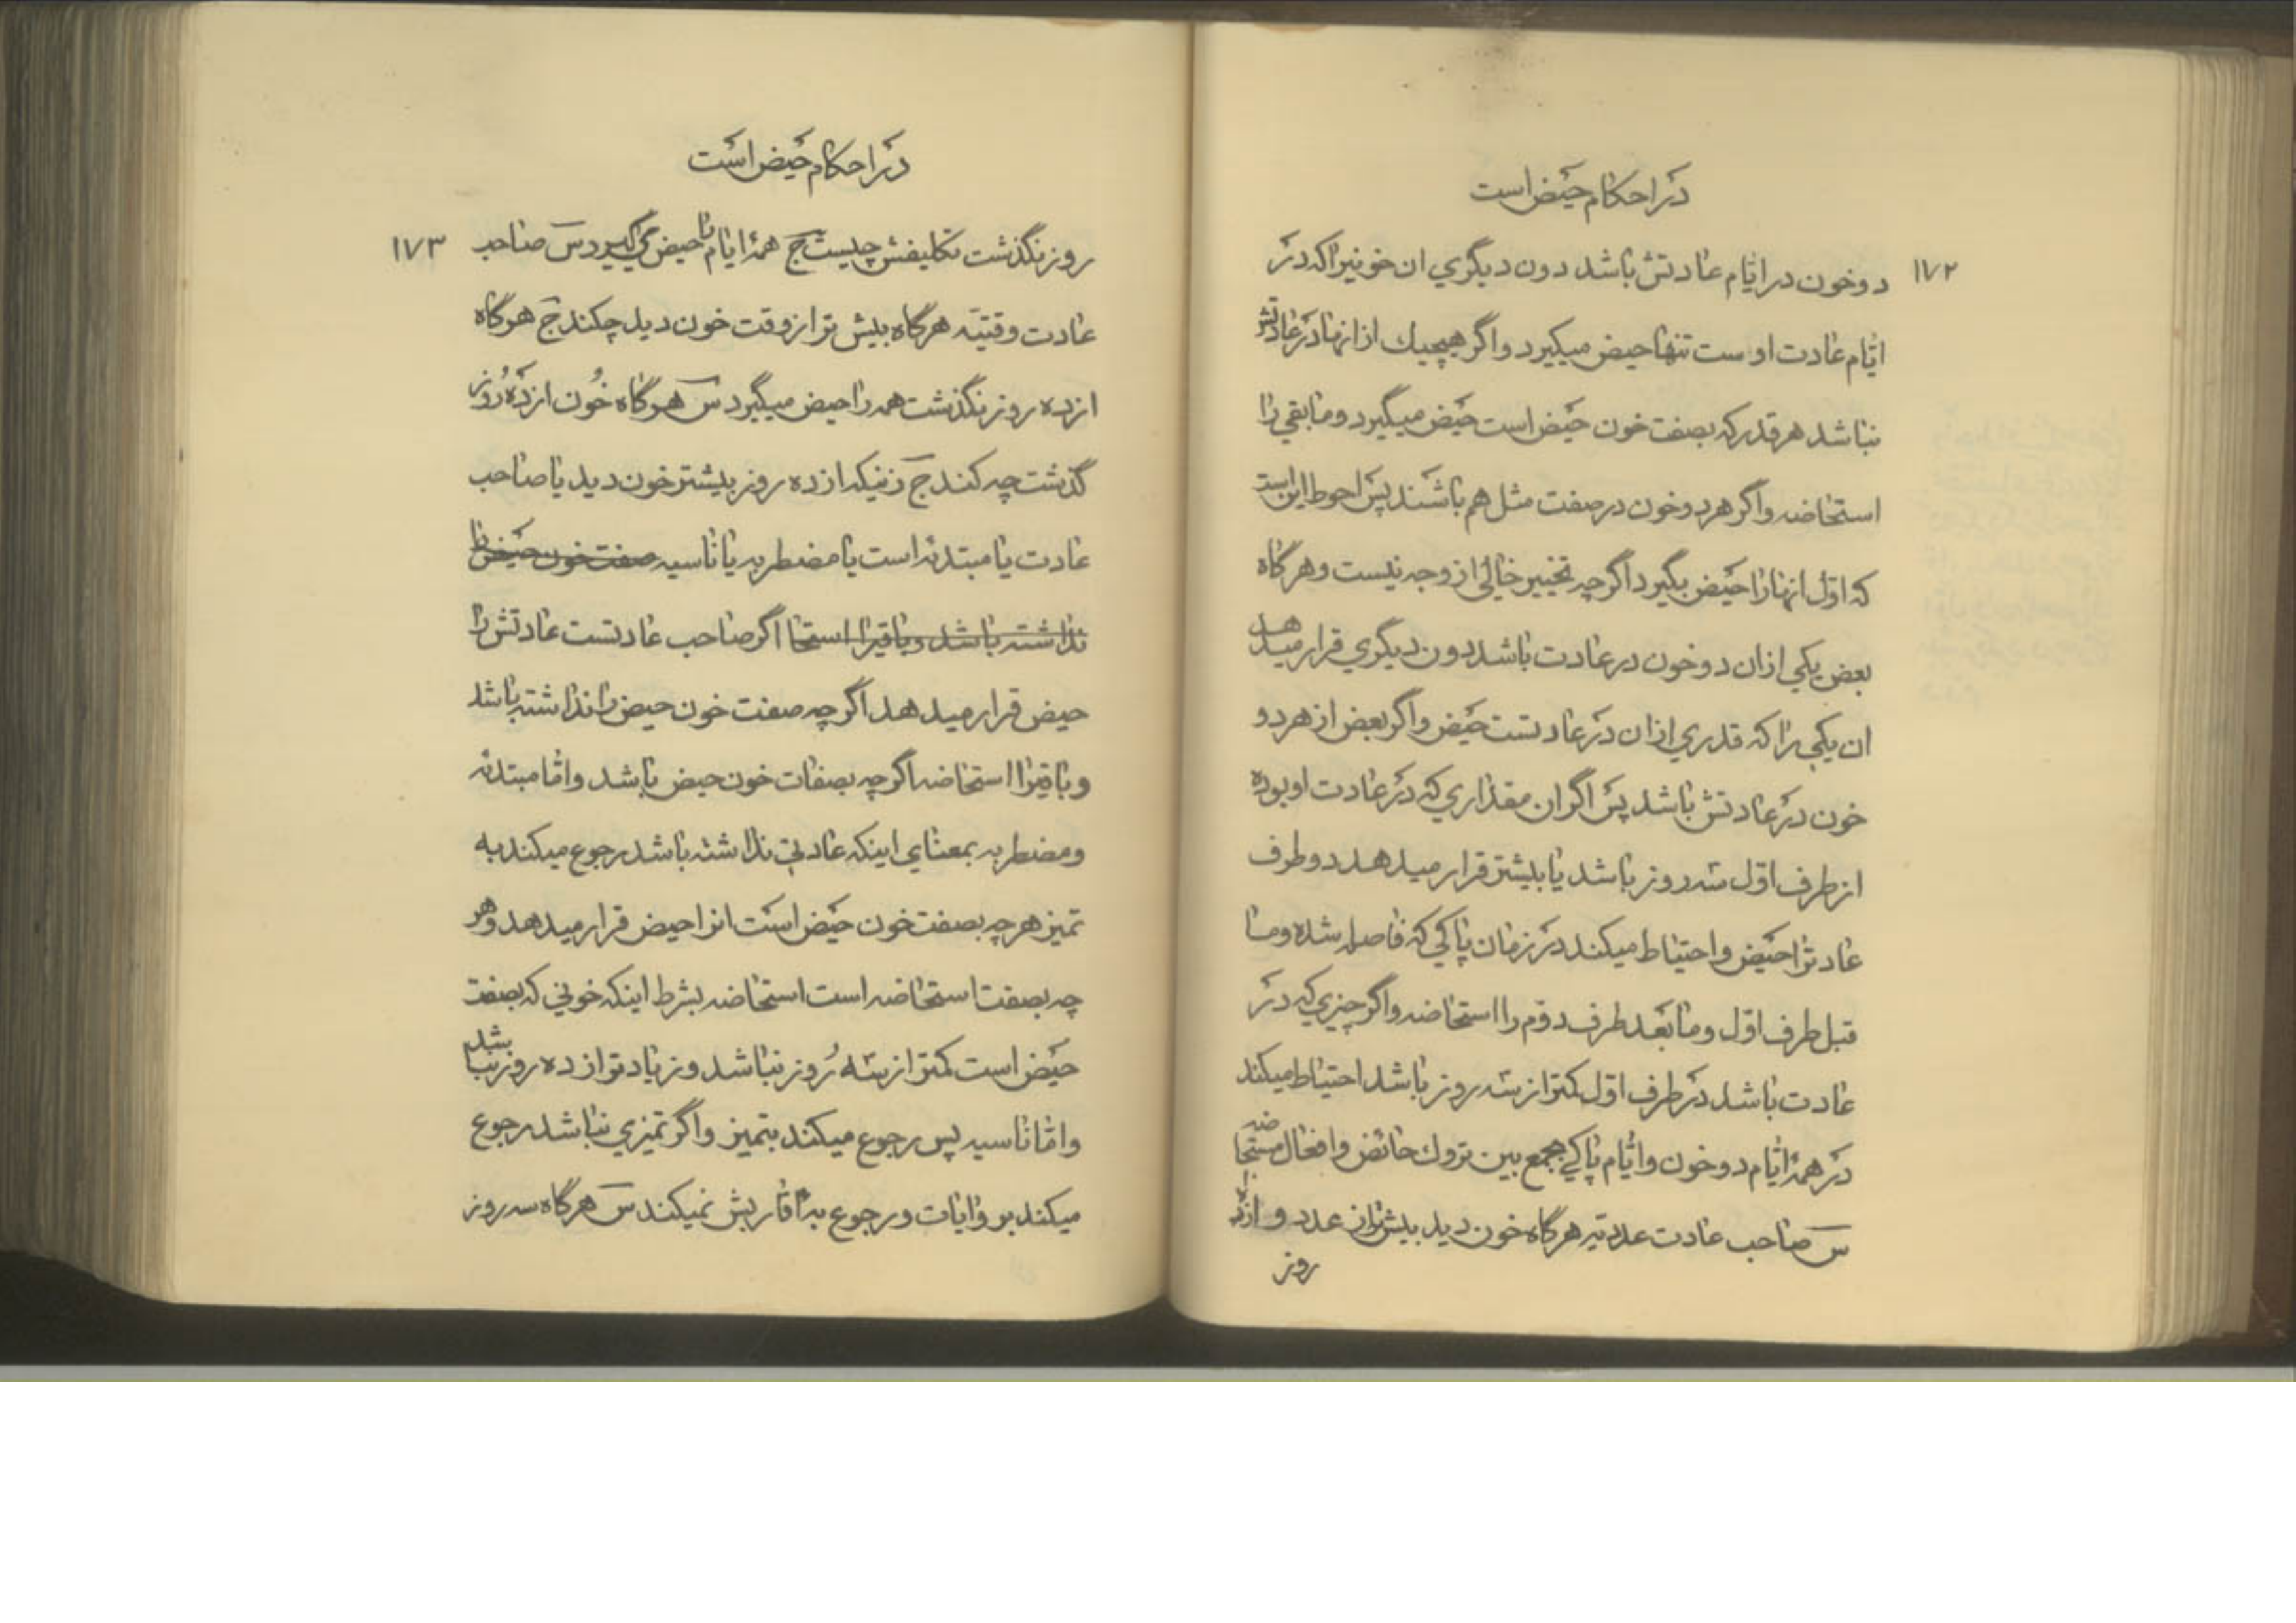 دراحکام حیض است
۱۷۲
دو خون در ایّام عادتش باشد دون دیگري ان خونیرا که در
ایّام عادت اوست تنها حیض میگیرد واگر هیچیك از انها در عادتش
نباشد هر قدر که بصفت خون حیض است حیض میگیرد و مابقي را
استحاضه واگر هر دو خون در صفت مثل هم باشند پس احوط این است
که اوّل انها را حیض بگیرد اگرچه تخییر خالي از وجه نیست وهرگاه
بعض یکي از ان دو خون در عادت باشد دون دیگري قرار میدهد
ان یکي را که قدري از ان در عادتست حیض واگر بعض از هر دو
خون در عادتش باشد پس اگر ان مقداري که در عادت او بوده
از طرف اوّل سه روز باشد یا بیشتر قرار میدهد دو طرف
عادترا حیض و احتیاط میکند در زمان پاکي که فاصله شده وما
قبل طرف اوّل وما بعد طرف دوّم را استحاضه واگر چیزي که در
عادت باشد در طرف اوّل کمتر از سه روز باشد احتیاط میکند
در همهٔ ایّام دو خون وایّام پاکي بجمع بین تروك حائض وافعال مستحاضه
س صاحب عادت عددیّه هرگاه خون دید بیش تر از عدد و از ده
روز
دراحکام حیض است
۱۷۳
روز نگذشت تکلیفش چیست ج همهٔ ایام را حیض مي گیرد س صاحب
عادت وقتیّه هرگاه پیش تر از وقت خون دید چکند ج هرگاه
از ده روز نگذشت همه را حیض میگیرد س هرگاه خون از ده روز
گذشت چه کند ج زنیکه از ده روز بیشتر خون دید یا صاحب
عادت یا مبتدئه است یا مضطربه یا ناسیه صفت خون حیض را
نداشته باشد وباقیرا استحا اگر صاحب عادتست عادتش را
حیض قرار میدهد اگرچه صفت خون حیض را نداشته باشد
وباقیرا استحاضه اگرچه بصفات خون حیض باشد وامّا مبتدئه
ومضطربه بمعناي اینکه عادتي نداشته باشد رجوع میکند به
تمیز هرچه بصفت خون حیض است انرا حیض قرار میدهد وهر
چه بصفت استحاضه است استحاضه بشرط اینکه خوني که بصفت
حیض است کمتر از سه روز نباشد و زیادتر از ده روز نباشد
وامّا ناسیه پس رجوع میکند بتمیز واگر تمیزي نباشد رجوع
میکند بروایات ورجوع به اقاربش نمیکند س هرگاه سه روز